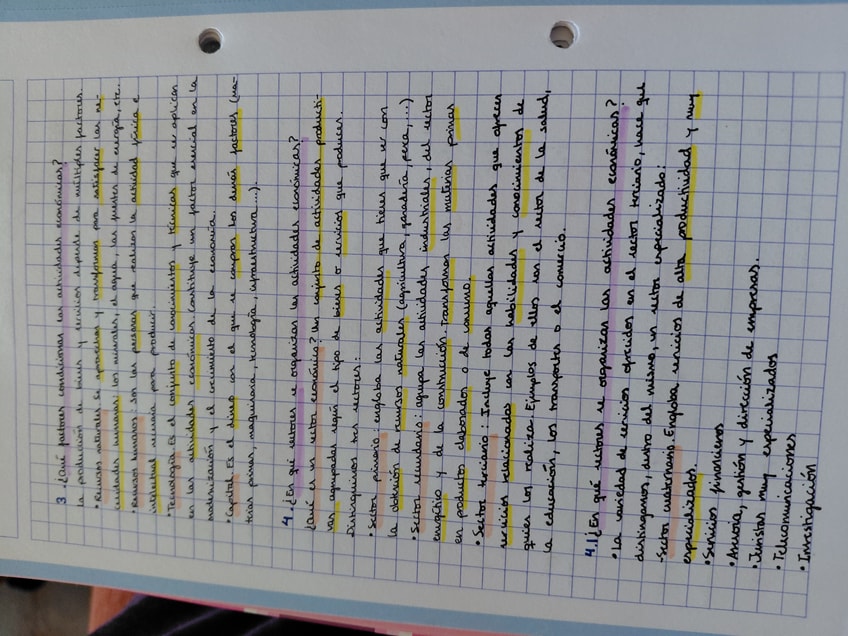 3 ¿Qué factores condicionan las actividades económicas?
la producción de bienes y servicios depende de múltiples factores.
• Recursos naturales: Se aprovechan y transforman para satisfacer las ne-
cesidades humanas: los minerales, el agua, las fuentes de energía, etc.
• Recursos humanos: son las personas que realizan la actividad física e
intelectual necesaria para producir.
• Tecnología: Es el conjunto de conocimientos y técnicas que se aplican
en las actividades económicas. Constituye un factor esencial en la
modernización y el crecimiento de la economía.
• Capital: Es el dinero con el que se compran los demás factores (ma-
terias primas, maquinaria, tecnología, infraestructura...).
4. ¿En qué sectores se organizan las actividades económicas?
¿Qué es un sector económico? Un conjunto de actividades producti-
vas agrupadas según el tipo de bienes o servicios que producen.
Distinguimos tres sectores:
• Sector primario: engloba las actividades que tienen que ver con
la obtención de recursos naturales (agricultura, ganadería, pesca,...)
• Sector secundario: agrupa las actividades industriales, del sector
energético y de la construcción. Transforman las materias primas
en productos elaborados o de consumo.
• Sector terciario: Incluye todas aquellas actividades que ofrecen
servicios relacionados con las habilidades y conocimientos de
quien los realiza. Ejemplos de ellos son el sector de la salud,
la educación, los transportes o el comercio.
4.1 ¿En qué sectores se organizan las actividades económicas?:
• La variedad de servicios ofrecidos en el sector terciario, hace que
distingamos, dentro del mismo, un sector especializado:
-Sector cuaternario. Engloba servicios de alta productividad y muy
especializados.
• Servicios financieros
• Asesoría, gestión y dirección de empresas.
• Juristas muy especializados
• Telecomunicaciones
• Investigación